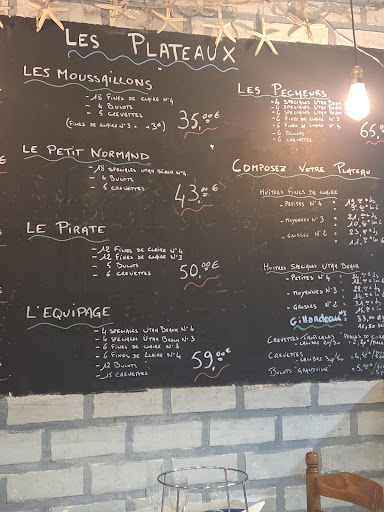 LES PLATEAUX
LES MOUSSAILLONS
- 18 FINES DE CLAIRE N°4
- 4 BULOTS
- 5 CREVETTES
(FINES DE CLAIRE N°3 = +3€)
35,00€
LE PETIT NORMAND
- 18 SPÉCIALES UTAH BEACH N°4
- 4 BULOTS
- 6 CREVETTES
43,00€
LE PIRATE
- 12 FINES DE CLAIRE N°4
- 12 FINES DE CLAIRE N°3
- 5 BULOTS
- 6 CREVETTES
50,00€
L'EQUIPAGE
- 4 SPÉCIALES UTAH BEACH N°4
- 4 SPÉCIALES UTAH BEACH N°3
- 6 FINES DE CLAIRE N°3
- 6 FINES DE CLAIRE N°4
- 12 BULOTS
- 15 CREVETTES
59,00€
LES PÊCHEURS
- 4 SPÉCIALES UTAH BEACH
- 4 SPÉCIALES UTAH BEACH
- 4 SPÉCIALES UTAH
- 6 FINES DE CLAIRE N°
- 6 FINES DE CLAIRE N°
- 6 BULOTS
- 6 CREVETTES
65,
COMPOSEZ VOTRE PLATEAU
HUÎTRES FINES DE CLAIRE
- PETITES N°4
- MOYENNES N°3
- GROSSES N°2
HUÎTRES SPÉCIALES UTAH BEACH
- PETITES N°4
- MOYENNES N°3
- GROSSES N°2
Gillardeau
CREVETTES
BULOTS "GRANVILLE"